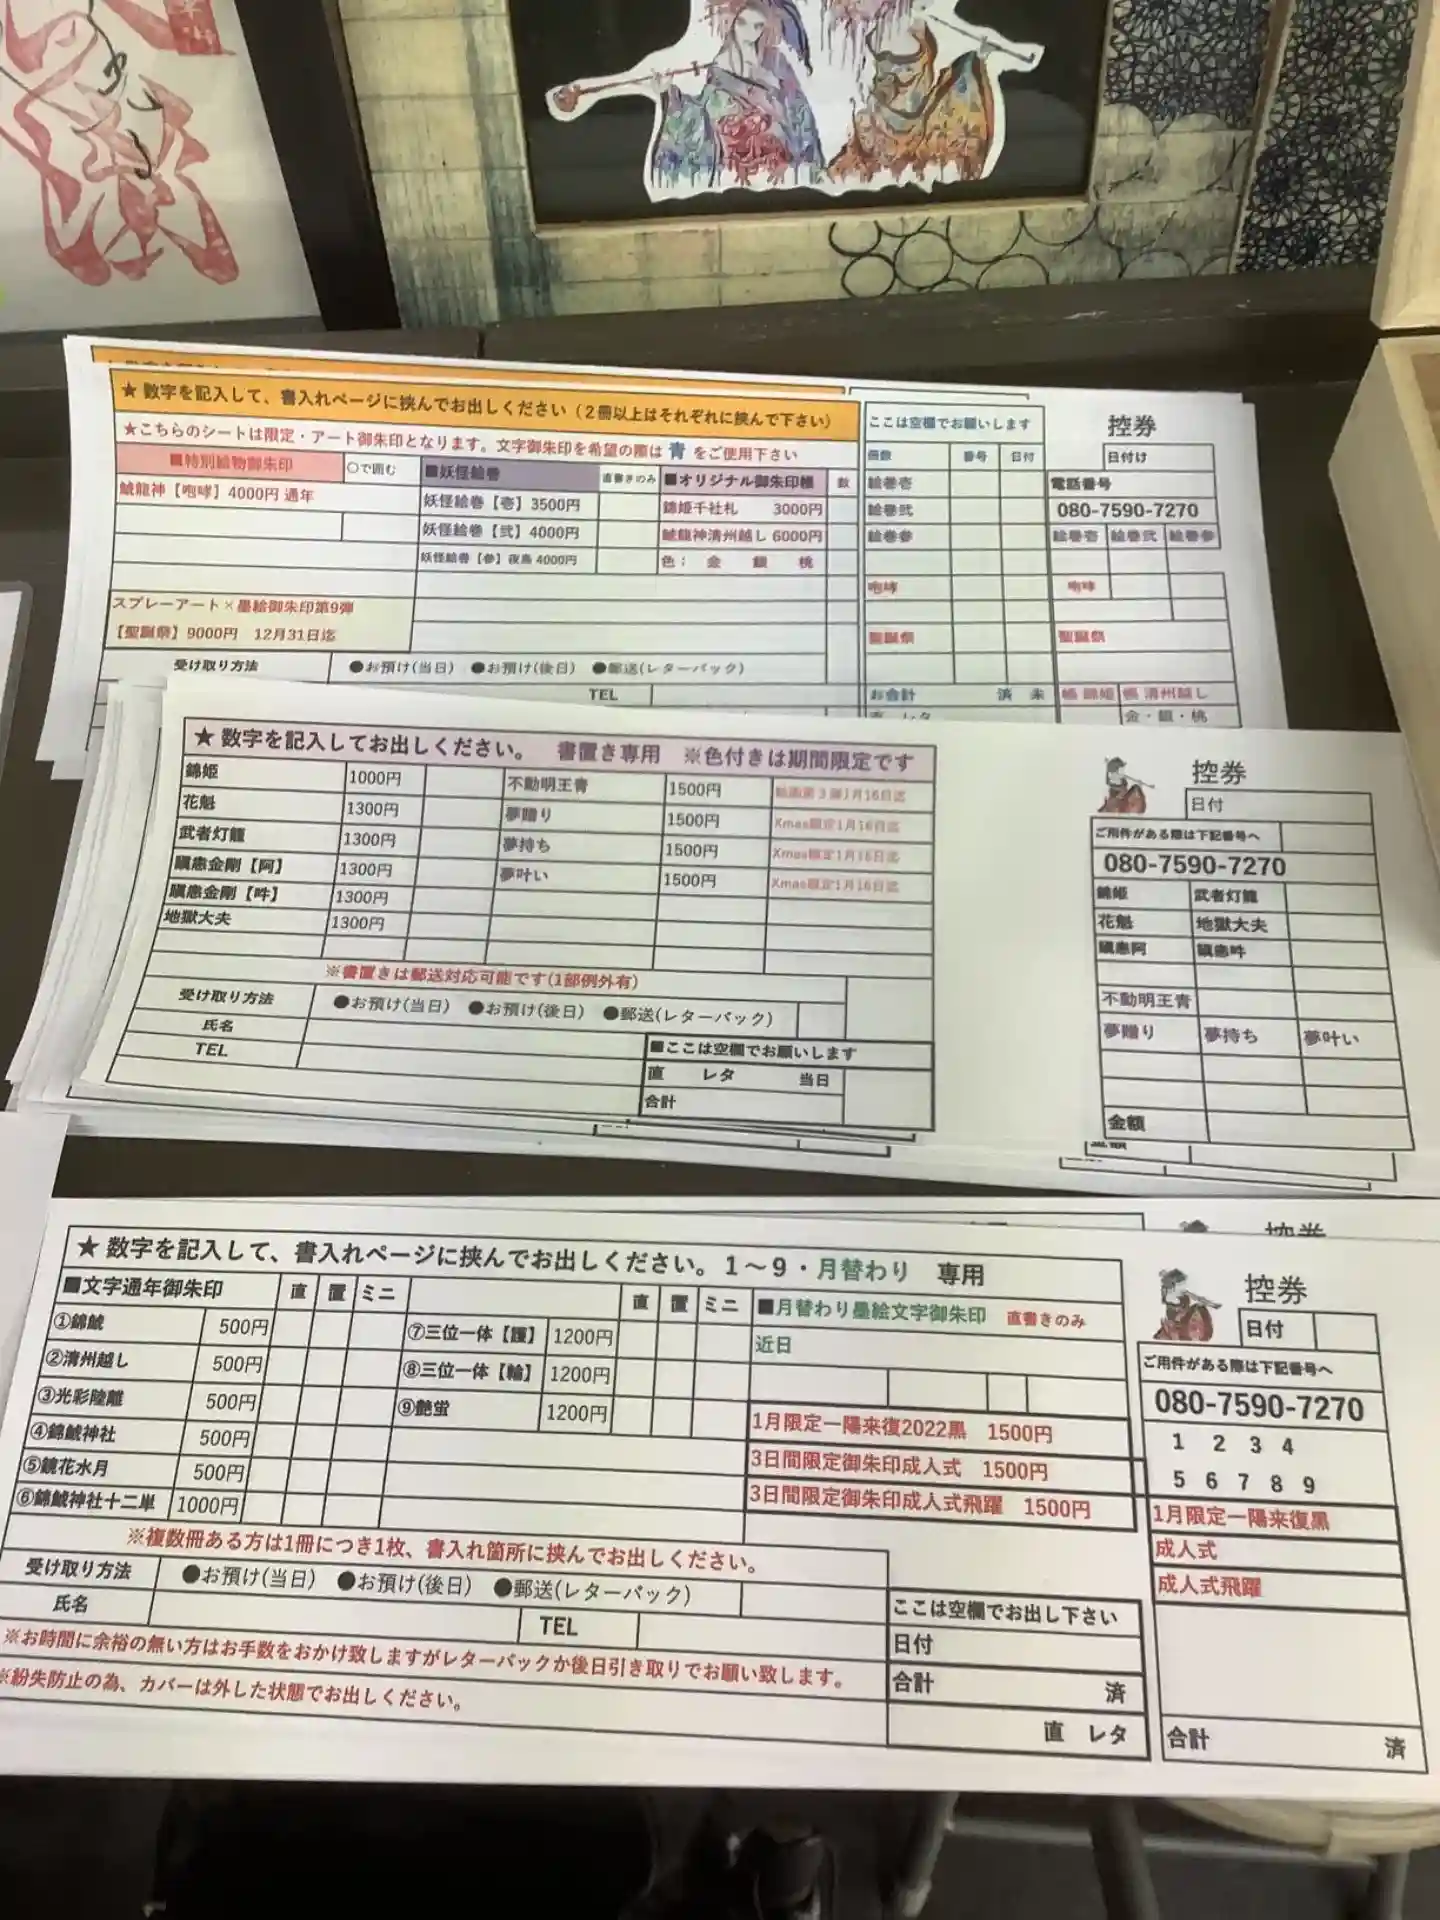 ★ 数字を記入して、書入れページに挟んでお出しください（2冊以上はそれぞれに挟んで下さい）
★こちらのシートは限定・アート御朱印となります。文字御朱印を希望の際は 青 をご使用下さい
■特別絵物御朱印 〇で囲む ■妖怪絵巻 直書きのみ ■オリジナル御朱印帳 数
鯱龍神【咆哮】4000円 通年 妖怪絵巻【壱】3500円 錦姫千社札 3000円
妖怪絵巻【弐】4000円 鯱龍神清州越し 6000円
妖怪絵巻【参】夜鳥 4000円 色： 金 銀 桃
スプレーアート×墨絵御朱印第9弾
【聖誕祭】9000円 12月31日迄
受け取り方法 ●お預け(当日) ●お預け(後日) ●郵送(レターパック)
TEL
ここは空欄でお願いします
冊数 番号 日付
絵巻壱
絵巻弐
絵巻参
咆哮
聖誕祭
お合計 済 未
直 レタ
控券
日付け
電話番号
080-7590-7270
絵巻壱 絵巻弐 絵巻参
咆哮
聖誕祭
帳 錦姫 帳 清州越し
金・銀・桃
★ 数字を記入してお出しください。 書置き専用 ※色付きは期間限定です
錦姫 1000円 不動明王青 1500円
花魁 1300円 夢贈り 1500円 Xmas限定1月16日迄
武者灯籠 1300円 夢持ち 1500円 Xmas限定1月16日迄
瞋恚金剛【阿】 1300円 夢叶い 1500円 Xmas限定1月16日迄
瞋恚金剛【吽】 1300円
地獄大夫 1300円
※書置きは郵送対応可能です(1部例外有)
受け取り方法 ●お預け(当日) ●お預け(後日) ●郵送(レターパック)
氏名
TEL
■ここは空欄でお願いします
直 レタ 当日
合計
控券
日付
ご用件がある際は下記番号へ
080-7590-7270
錦姫 武者灯籠
花魁 地獄大夫
瞋恚阿 瞋恚吽
不動明王青
夢贈り 夢持ち 夢叶い
金額
★ 数字を記入して、書入れページに挟んでお出しください。1～9・月替わり 専用
■文字通年御朱印 直 置 ミニ 直 置 ミニ ■月替わり墨絵文字御朱印 直書きのみ
①錦鯱 500円 ⑦三位一体【護】 1200円 近日
②清州越し 500円 ⑧三位一体【輪】 1200円
③光彩陸離 500円 ⑨艶蛍 1200円 1月限定一陽来復2022黒 1500円
④錦鯱神社 500円 3日間限定御朱印成人式 1500円
⑤鏡花水月 500円 3日間限定御朱印成人式飛躍 1500円
⑥錦鯱神社十二単 1000円
※複数冊ある方は1冊につき1枚、書入れ箇所に挟んでお出しください。
受け取り方法 ●お預け(当日) ●お預け(後日) ●郵送(レターパック)
氏名 TEL
※お時間に余裕の無い方はお手数をおかけ致しますがレターパックか後日引き取りでお願い致します。
※紛失防止の為、カバーは外した状態でお出しください。
ここは空欄でお出し下さい
日付
合計 済
直 レタ
控券
日付
ご用件がある際は下記番号へ
080-7590-7270
1 2 3 4
5 6 7 8 9
1月限定一陽来復黒
成人式
成人式飛躍
合計 済